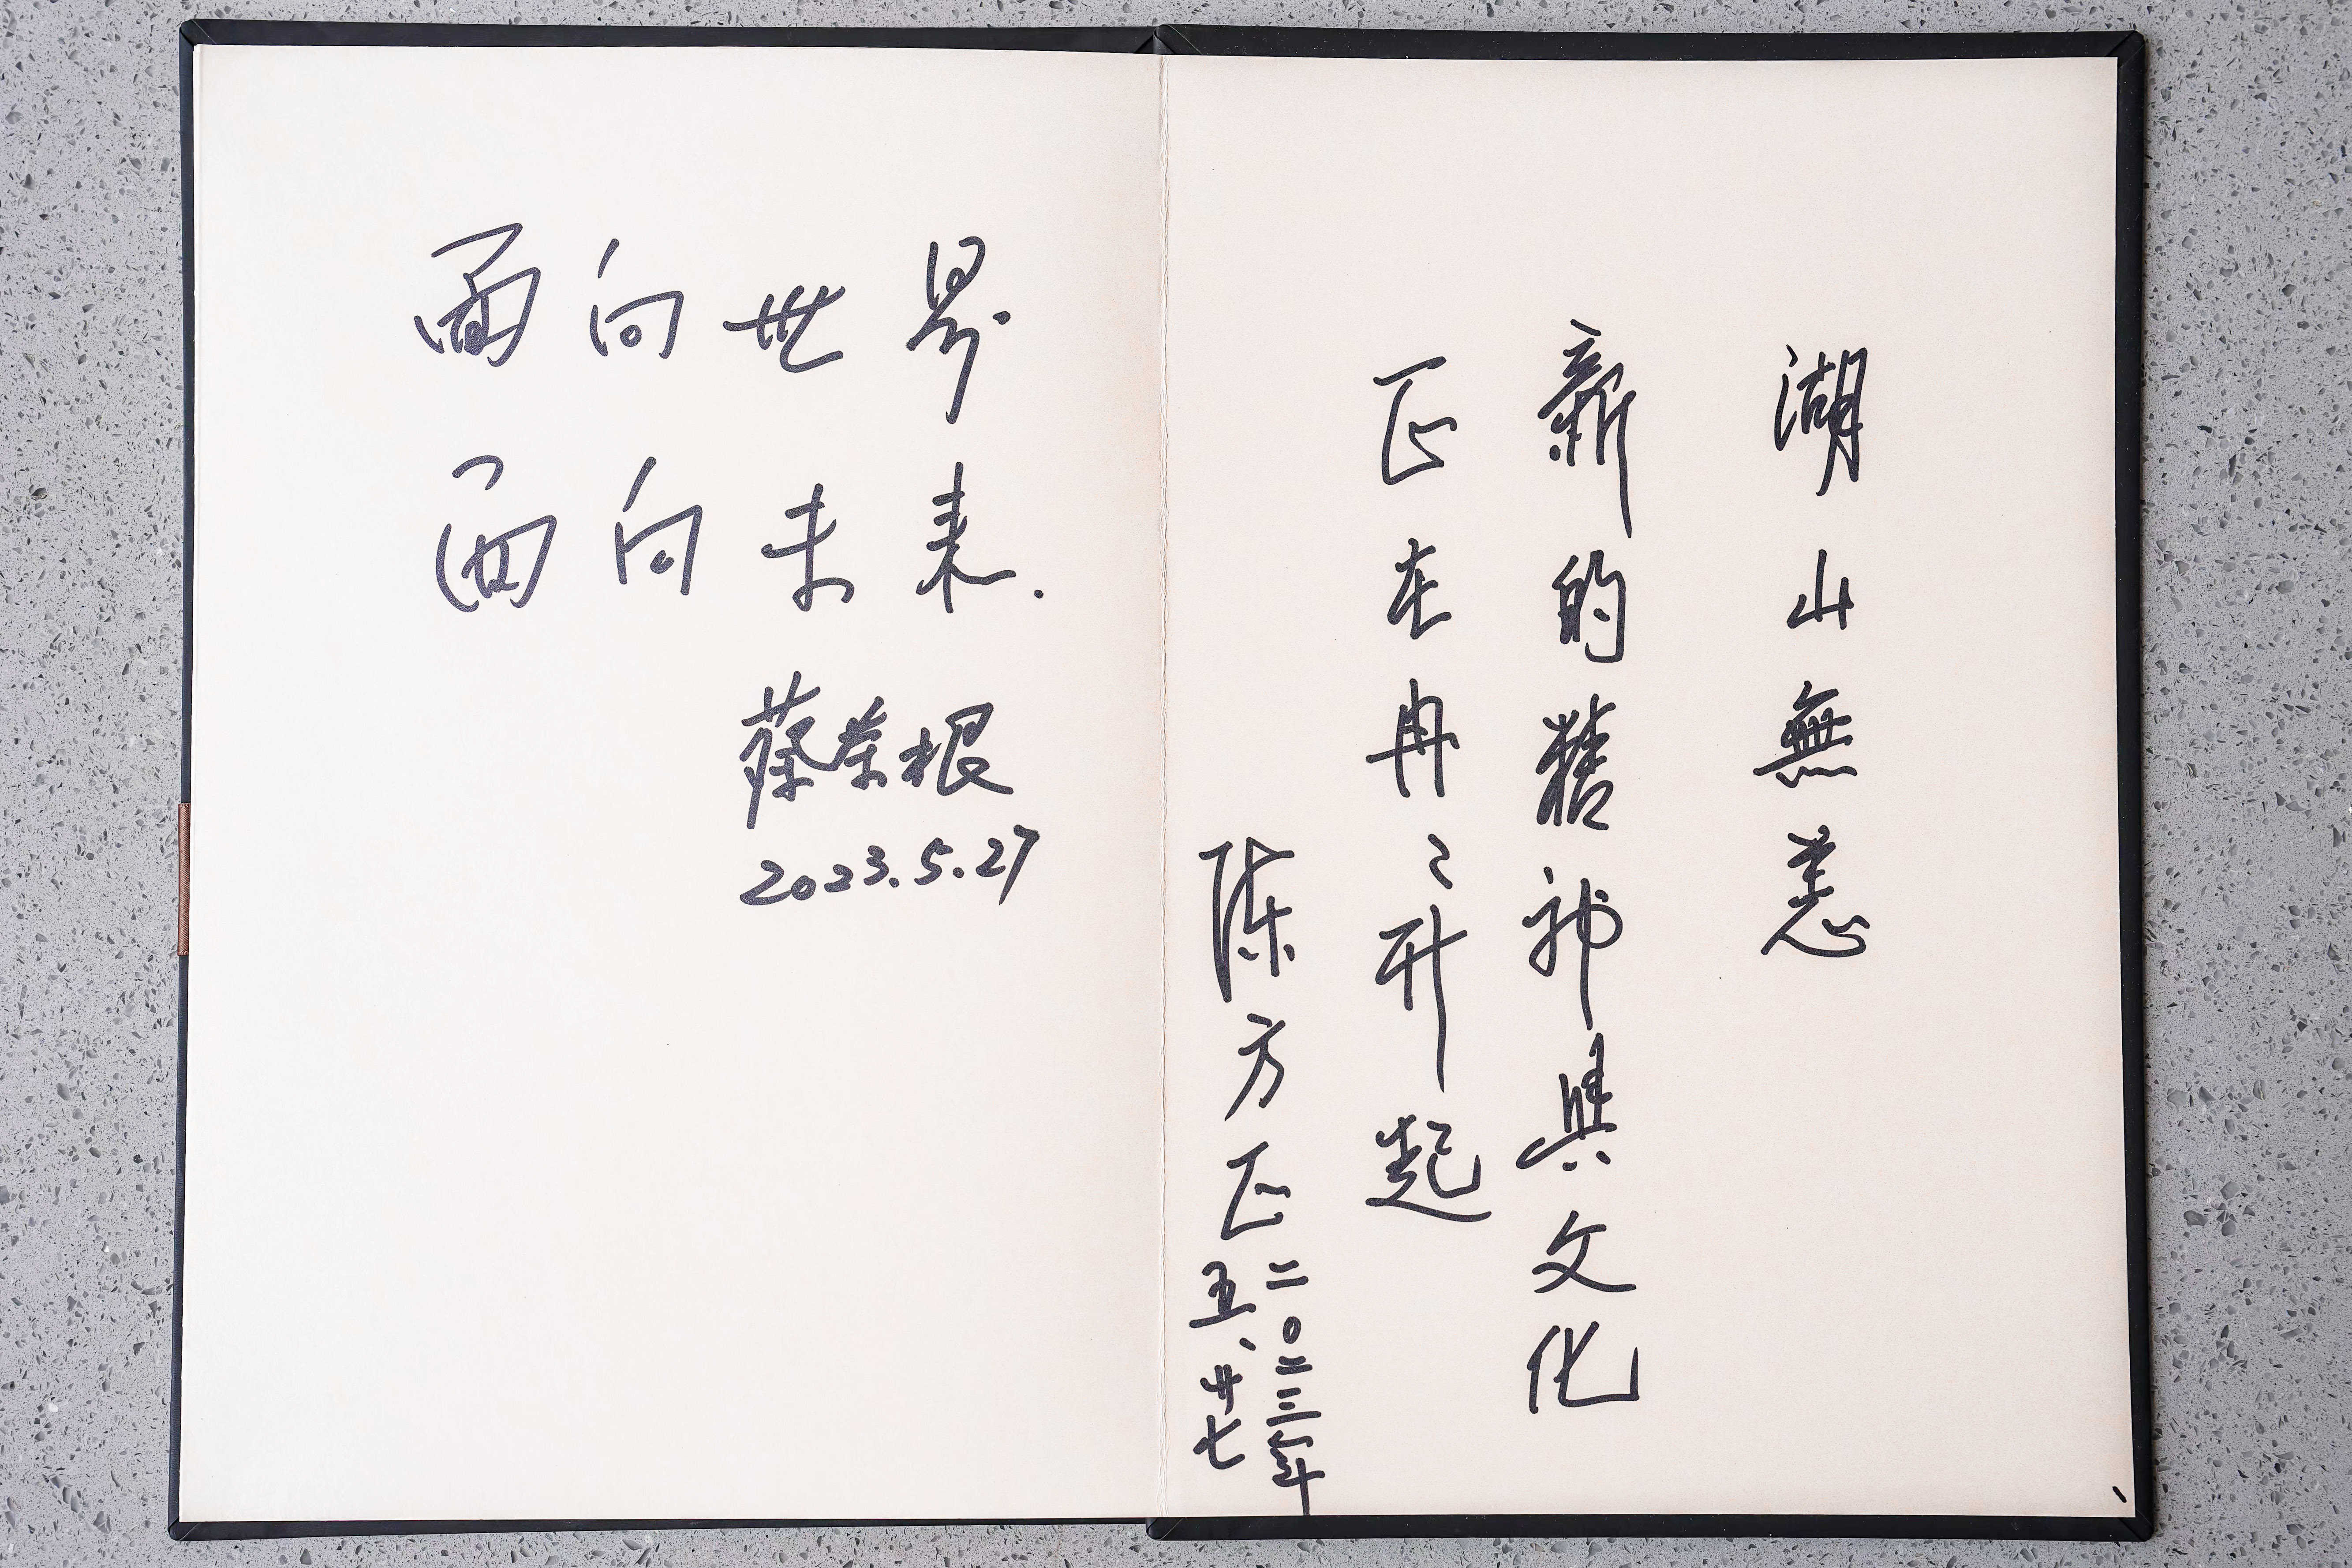 面向世界.
面向未来.
蔡荣根
2023.5.27
湖山無恙
新的精神與文化
正在冉〻升起
陈方正
二〇二三年
五、廿七